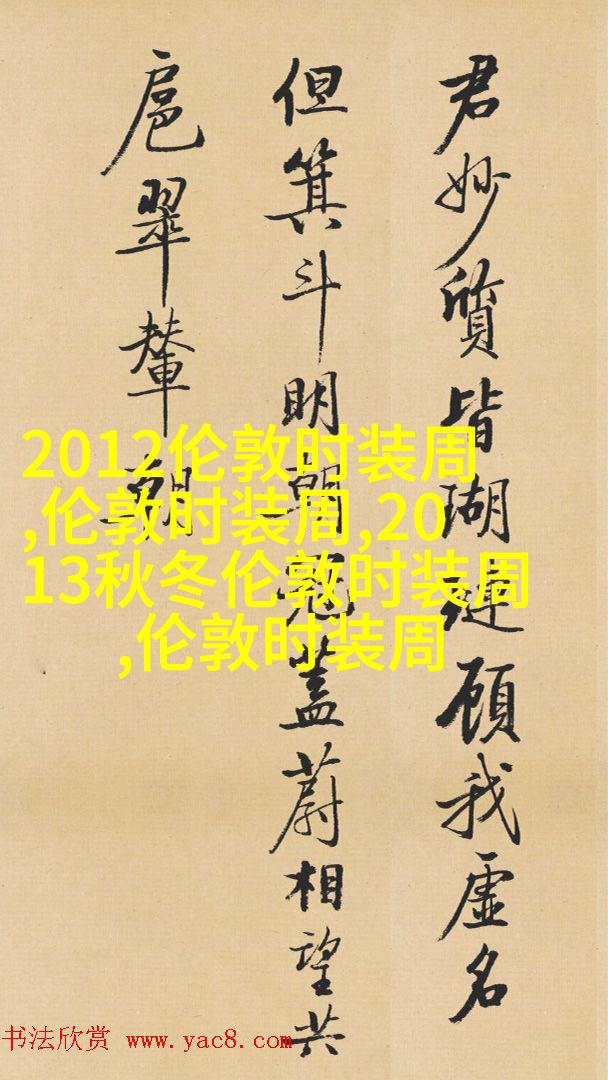 君妙質皆瑚璉顧我虛名
但箕斗明朝冠蓋蔚相望共
扈翠輦朝
2012伦敦时装周
,伦敦时装周,20
13秋冬伦敦时装周
,伦敦时装周
书法欣赏 www.yac8.com